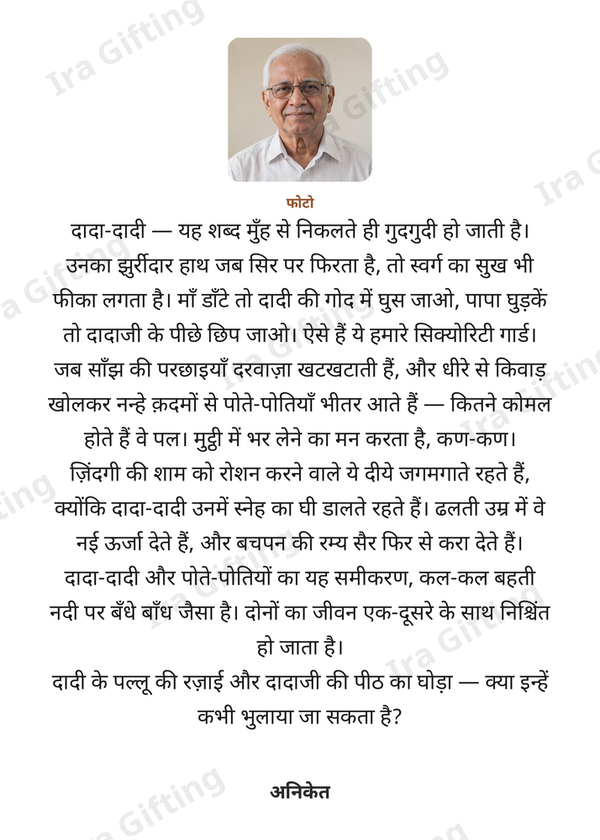 Ira Gifting
फोटो
दादा-दादी — यह शब्द मुँह से निकलते ही गुदगुदी हो जाती है।
उनका झुर्रीदार हाथ जब सिर पर फिरता है, तो स्वर्ग का सुख भी
फीका लगता है। माँ डाँटे तो दादी की गोद में घुस जाओ, पापा घुड़कें
तो दादाजी के पीछे छिप जाओ। ऐसे हैं ये हमारे सिक्योरिटी गार्ड।
जब साँझ की परछाइयाँ दरवाज़ा खटखटाती हैं, और धीरे से किवाड़
खोलकर नन्हे क़दमों से पोते-पोतियाँ भीतर आते हैं — कितने कोमल
होते हैं वे पल। मुट्ठी में भर लेने का मन करता है, कण-कण।
ज़िंदगी की शाम को रोशन करने वाले ये दीये जगमगाते रहते हैं,
क्योंकि दादा-दादी उनमें स्नेह का घी डालते रहते हैं। ढलती उम्र में वे
नई ऊर्जा देते हैं, और बचपन की रम्य सैर फिर से करा देते हैं।
दादा-दादी और पोते-पोतियों का यह समीकरण, कल-कल बहती
नदी पर बँधे बाँध जैसा है। दोनों का जीवन एक-दूसरे के साथ निश्चिंत
हो जाता है।
दादी के पल्लू की रज़ाई और दादाजी की पीठ का घोड़ा — क्या इन्हें
कभी भुलाया जा सकता है?
अनिकेत